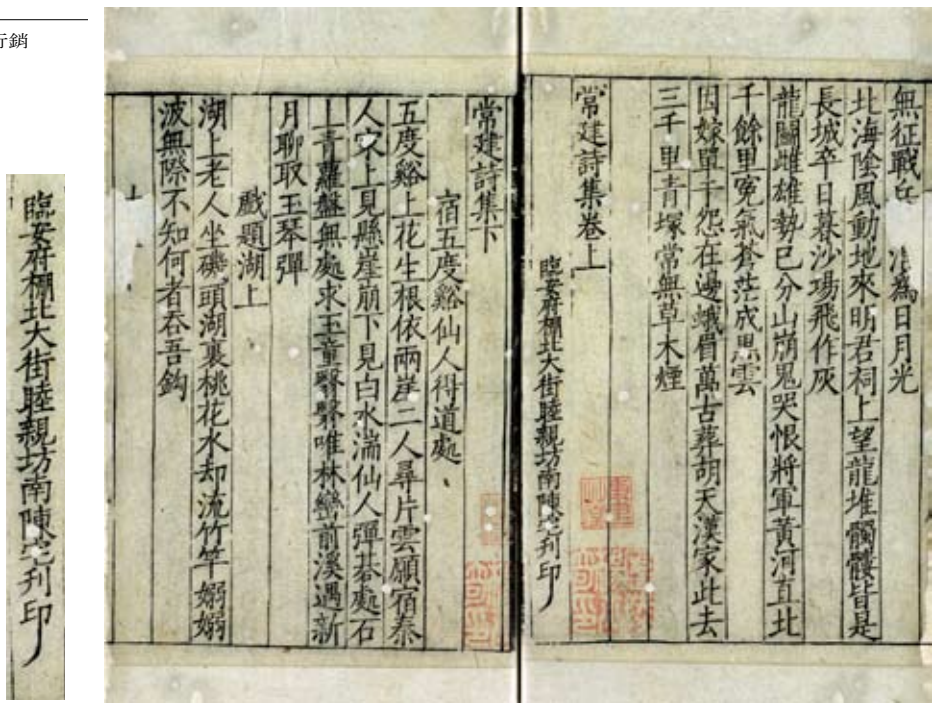 行銷
臨安府棚北大街睦親坊南陳宅刊印
無征戰兵 為日月光
北海陰風動地來明君祠上望龍堆髑髏皆是
長城卒日暮沙場飛作灰
龍鬬雌雄勢已分山崩鬼哭恨將軍黃河直北
千餘里寃氣蒼茫成黒雲
因嫁單于怨在邊蛾眉萬古葬胡天漢家此去
三千里青塚常無草木煙
常建詩集卷上
臨安府棚北大街睦親坊南陳宅刊印
常建詩集下
宿五度谿仙人得道處
五度谿上花生根依兩崖二人尋片雲願宿秦
人家上見懸崖崩下見白水湍仙人彈棊處石
上青蘿盤無處求玉童翳翳唯林巒前溪遇新
月聊取玉琴彈
戲題湖上
湖上老人坐磯頭湖裏桃花水却流竹竿嫋嫋
波無際不知何者吞吾鈎